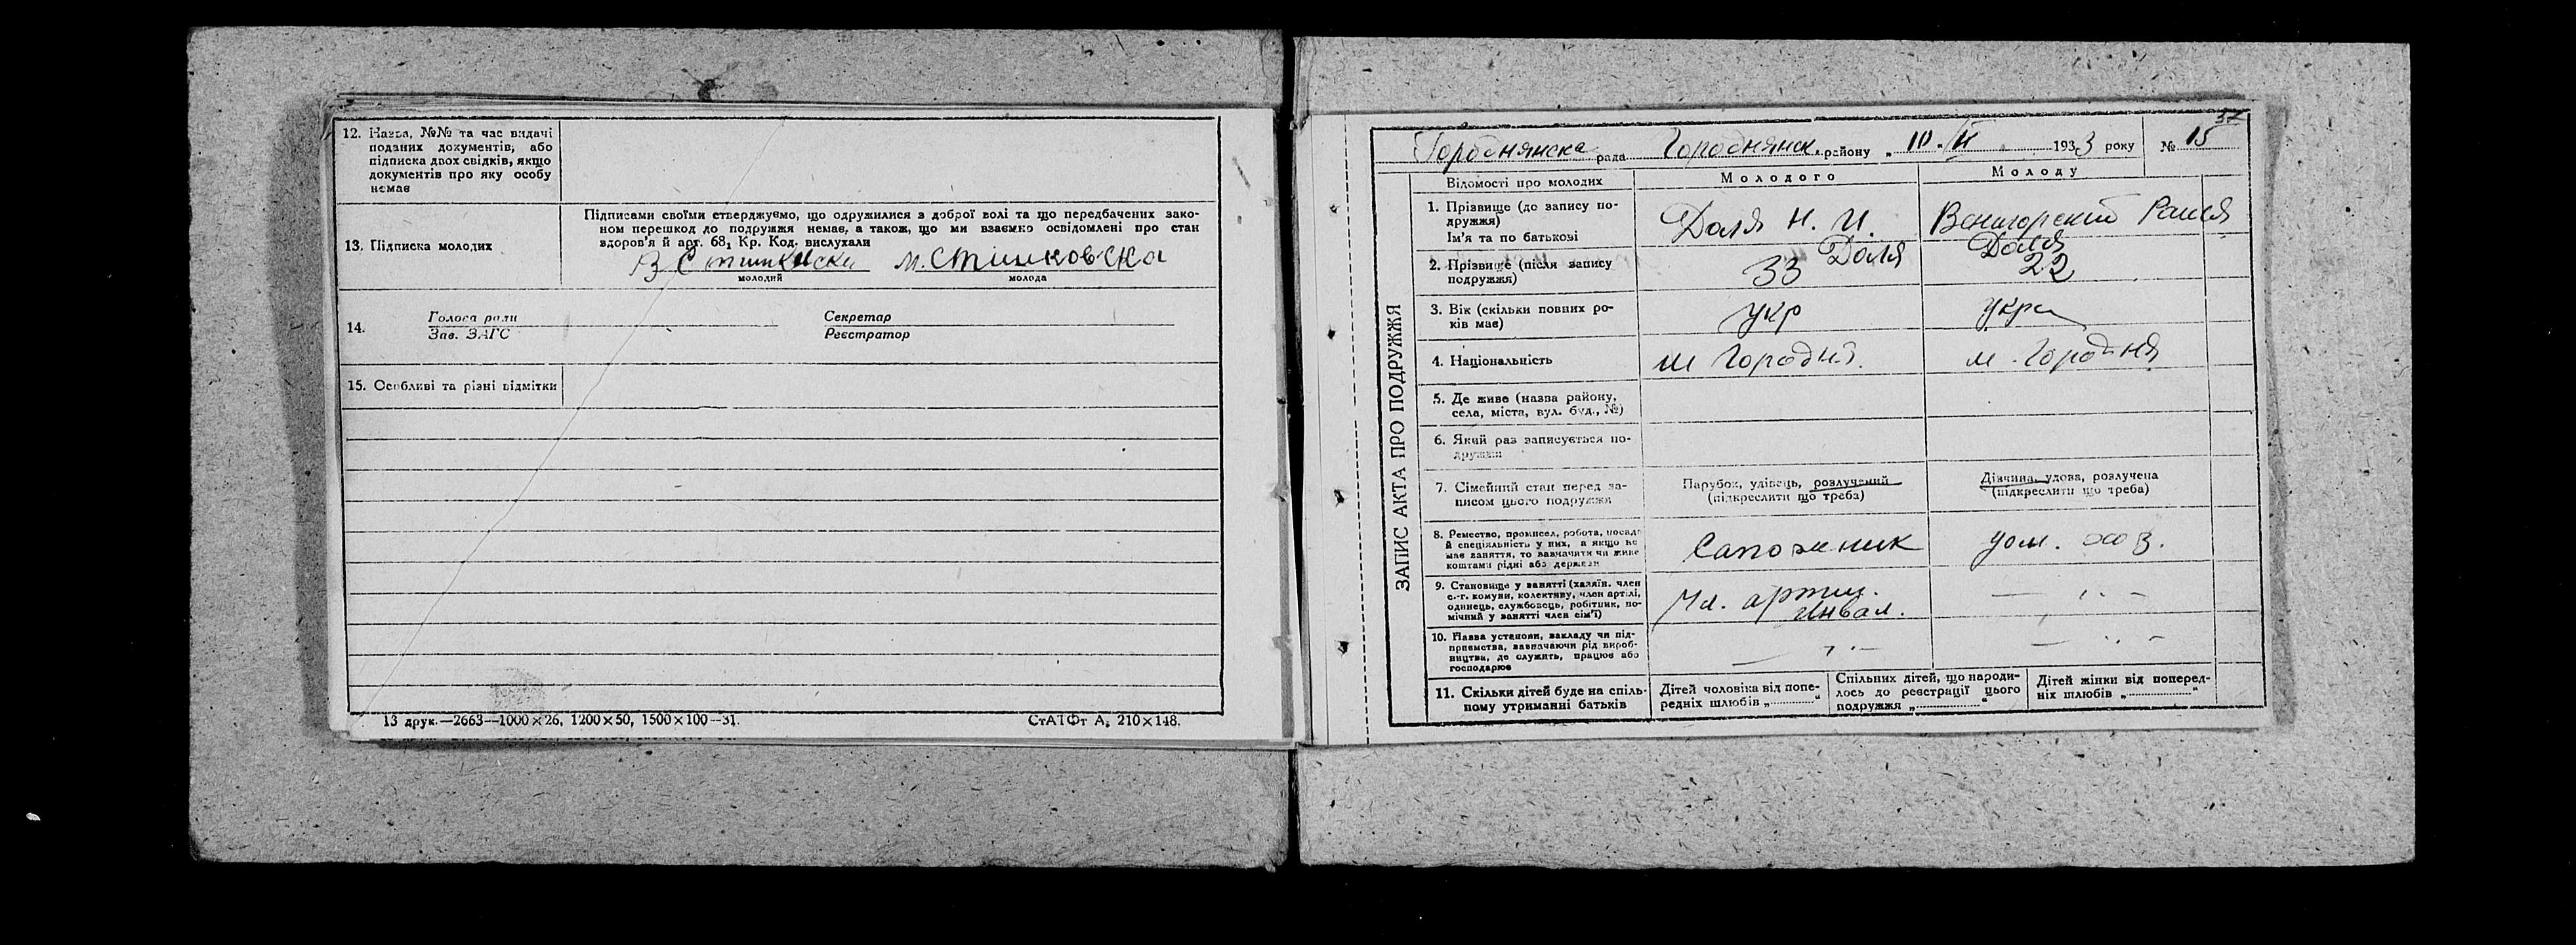 12. Назва, №№ та час видачі
поданих документів, або
підписка двох свідків, якщо
документів про яку особу
немає
13. Підписка молодих
Підписами своїми стверджуємо, що одружилися з доброї волі та що передбачених зако-
ном перешкод до подружжя немає, а також, що ми взаємно освідомлені про стан
здоров'я й арт. 68, Кр. Код. вислухали
м. Стішковска
молодий
молода
14.
Голова ради
Зав. ЗАГС
Секретар
Реєстратор
15. Особливі та різні відмітки
13 друк.—2663—1000×26, 1200×50, 1500×100—31.
СтАТФт А, 210×148.
37
Городнянска рада Городнянск району „ 10 " II 1933 року № 15
ЗАПИС АКТА ПРО ПОДРУЖЖЯ
Відомості про молодих
Молодого
Молоду
1. Прізвище (до запису по-
дружжя)
Ім'я та по батькові
Доля Н. И.
Раися
2. Прізвище (після запису
подружжя)
Доля
33
Доля
22
3. Вік (скільки повних ро-
ків має)
укр
укра
4. Національність
м Городня.
м. Городня
5. Де живе (назва району,
села, міста, вул. буд., №)
6. Який раз записується по-
дружжя
7. Сімейний стан перед за-
писом цього подружжя
Парубок, удівець, розлучений
(підкреслити що треба)
Дівчина, удова, розлучена
(підкреслити що треба)
8. Ремество, промисел, робота, посада
й спеціяльність у них, а якщо не
має заняття, то зазначити чи живе
коштами рідні або держави
Сапожник
дом. хоз.
9. Становище у занятті (хазяїн, член
с.-г. комуни, колективу, член артілі,
одинець, службовець, робітник, по-
мічний у занятті член сім'ї)
Чл. артил.
Инвал.
10. Назва установи, закладу чи під-
приємства, зазначаючи рід вироб-
ництва, де служить, працює або
господарює
11. Скільки дітей буде на спіль-
ному утриманні батьків
Дітей чоловіка від попе-
редніх шлюбів „ "
Спільних дітей, що народи-
лось до реєстрації цього
подружжя „ "
Дітей жінки від поперед-
ніх шлюбів „ "